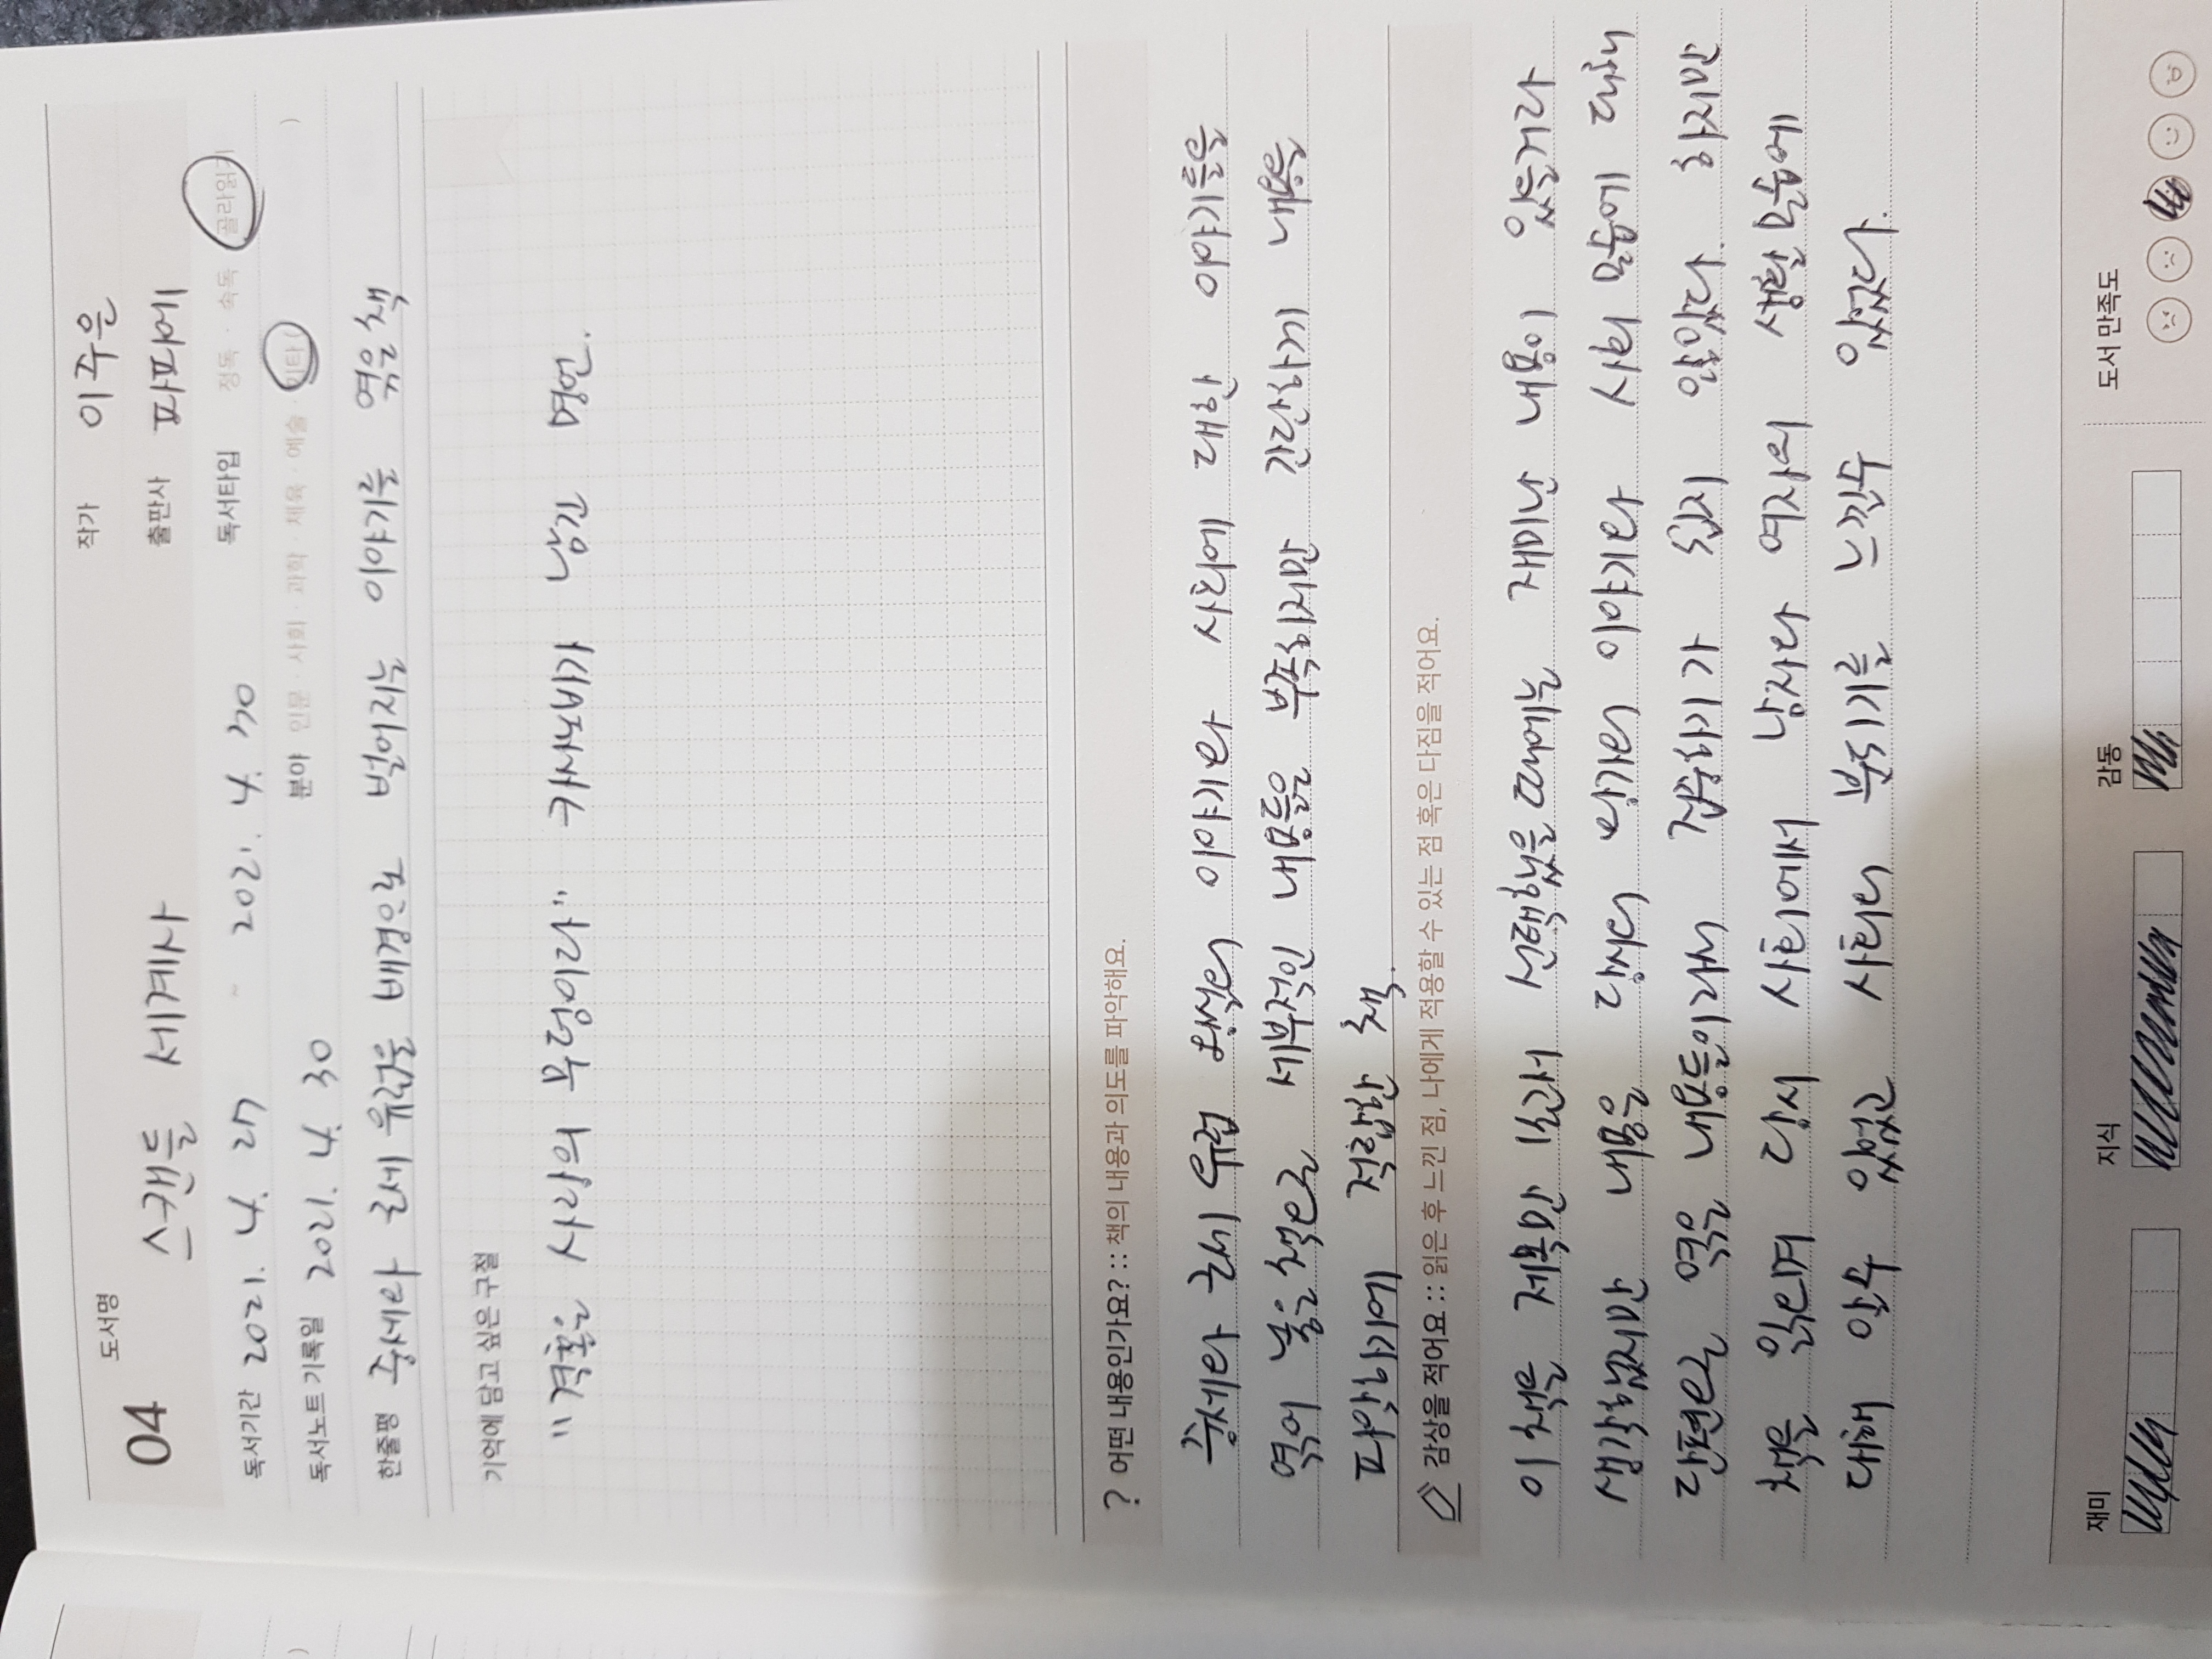 04 도서명 스캔들 세계사
작가 이주은
출판사 파피에
독서기간 2021. 4. 27 ~ 2021. 4. 30
독서타입 정독 · 속독 · 골라읽기
독서노트 기록일 2021. 4. 30
분야 인문 · 사회 · 과학 · 체육 · 예술 · 기타 ( )
한줄평 중세와 근세 유럽을 배경으로 벌어지는 이야기를 엮은 책
기억에 담고 싶은 구절
"결혼은 사랑의 무덤이라" 카사노바가 남긴 명언.
? 어떤 내용인가요? :: 책의 내용과 의도를 파악해요.
중세와 근세 유럽 왕실의 이야기와 사회에 대한 이야기들을
엮어 놓은 책으로 세부적인 내용들은 부족하지만 간단하게 내용을
파악하기에 적합한 책.
감상을 적어요 :: 읽은 후 느낀 점, 나에게 적용할 수 있는 점 혹은 다짐을 적어요.
이 책을 제목만 보고서 선택했을 때에는 재미난 내용이 있을거라
생각했지만 내용은 당시의 왕가의 이야기와 사회 모습에 대해
단편으로 엮은 내용들이라서 집중하기가 쉽지 않았다. 하지만
책을 읽으며 당시 사회에서 남자와 여자의 생활 모습에
대해 알수 있었고 사회의 분위기를 느낄수 있었다.
재미 지식 감동 도서 만족도